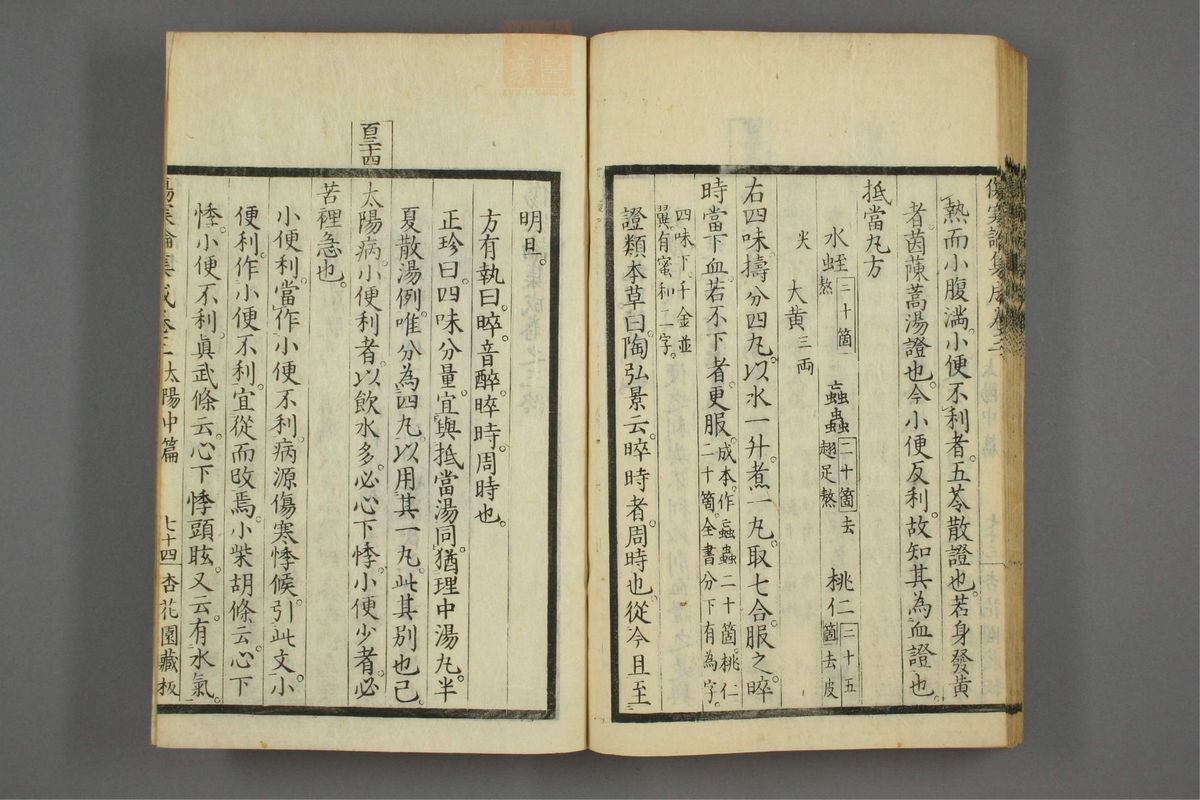 熱而小腹滿。小便不利者。五苓散證也。若身發黃
者。茵蔯蒿湯證也。今小便反利。故知其為血證也。
抵當丸方
水蛭二十箇熬 蝱蟲二十箇去翅足熬 桃仁二十五箇去皮
尖 大黃三両
右四味。擣分四丸。以水一升煮一丸。取七合服之。晬
時當下血。若不下者更服。成本。作蝱蟲二十箇。桃仁
二十箇。全書分下有為字。
四味下。千金並
翼有蜜和二字。
證類本草曰。陶弘景云。晬時者。周時也。從今旦至
明旦。
方有執曰。晬。音醉。晬時。周時也。
正珍曰。四味分量。宜與抵當湯同。猶理中湯丸。半
夏散湯例。唯分為四丸。以用其一丸。此其別也已。
百三十四
太陽病。小便利者。以飲水多。必心下悸。小便少者。必
苦裡急也。
小便利。當作小便不利。病源傷寒悸候。引此文。小
便利。作小便不利。宜從而改焉。小柴胡條云。心下
悸。小便不利。眞武條云。心下悸頭眩。又云。有水氣。
傷寒論集成卷三 太陽中篇 七十四 杏花園藏板